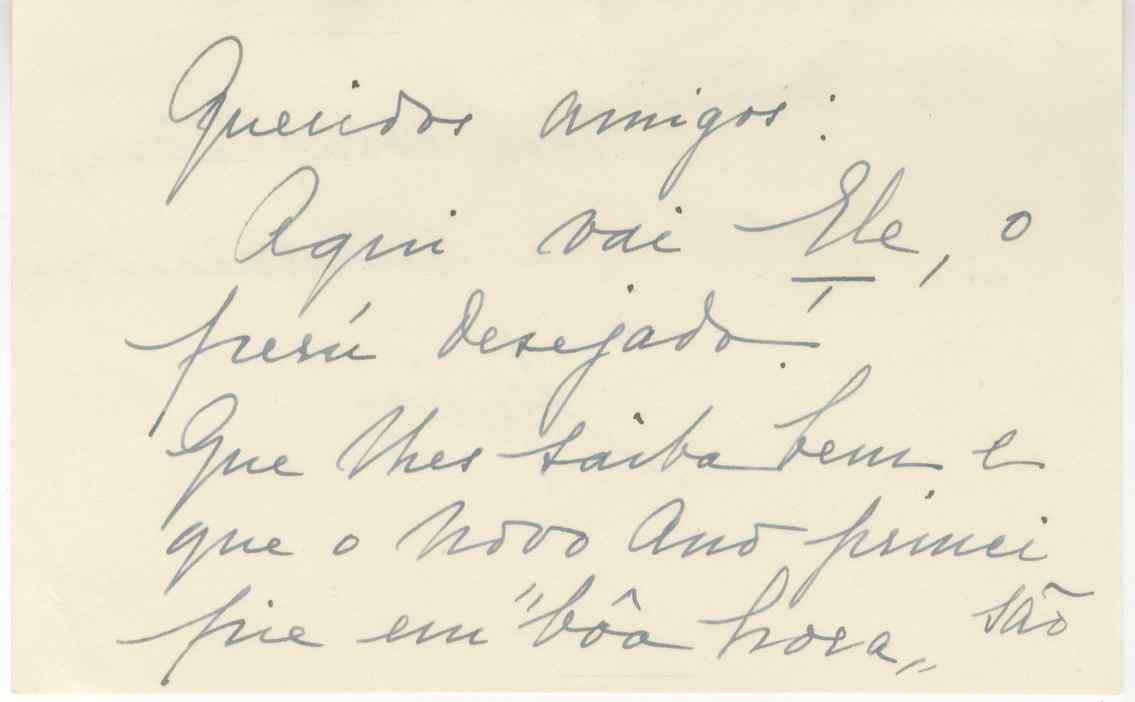 Queridos amigos:
Aqui vai Ele, o
perú desejado!
Que lhes saiba bem e
que o Novo Ano princi
pie em "bôa hora„ são